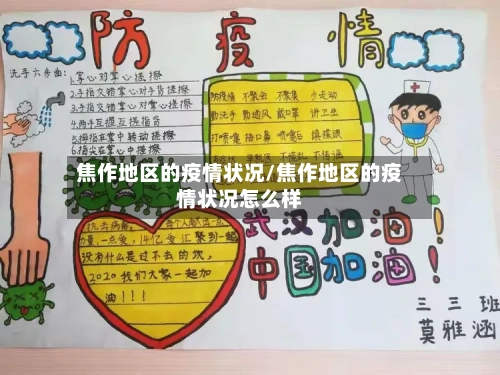 防疫情
洗手六步曲：
1.掌心对掌心搓擦
2.手指交错掌心对手背搓擦
3.手指交错掌心对掌心搓擦
4.两手互握互搓指背
5.拇指在掌中转动搓擦
6.指尖在掌心中搓擦
防疫情 不聚会 不聚集 少走动
勤洗手 勤通风 戴口罩 讲卫生
打喷嚏 捂口鼻 喷嚏后 慎揉眼
焦作地区的疫情状况/焦作地区的疫
情状况怎么样
抗击病毒，每个人献出一点
力量，一点爱，14亿爱汇聚到一起
没有什么是过不去的坎，
2020我们大家一起加
油！！！
武汉加油！
中国加油！
三三班
莫雅涵